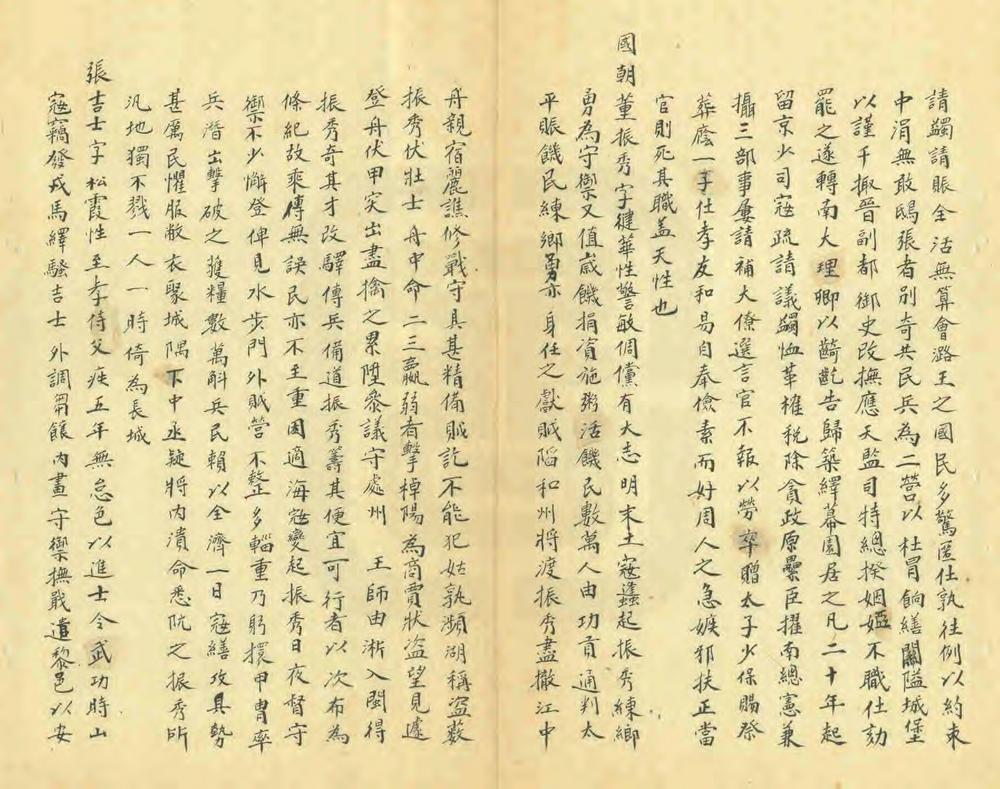 請蠲請賑全活無算會潞王之國民多驚匿仕孰往例以約束
中涓無敢鴟張者別奇兵民兵為二營以杜冒餉繕關隘城堡
以謹千掫晉副都御史改撫應天監司特總揆姻婭不職仕劾
罷之遂轉南大理卿以齮齕告歸築繹幕園居之凡二十年起
留京少司寇疏請議蠲恤革榷稅除貪政原纍臣擢南總憲兼
攝三部事屢請補大僚選言官不報以勞卒贈太子少保賜祭
葬廕一子仕孝友和易自奉儉素而好周人之急嫉邪扶正當
官則死其職蓋天性也
國朝董振秀字健華性警敏倜儻有大志明末土寇蠭起振秀練鄉
勇為守禦又值嵗饑捐資施粥活饑民數萬人由功貢通判太
平賑饑民練鄉勇亦身任之獻賊陷和州将渡振秀盡撤江中
舟親宿麗譙修戰守具甚精備賊訖不能犯姑孰瀕湖稱盜薮
振秀伏壯士舟中命二三羸弱者擊棹陽為商賈狀盜望見遽
登舟伏甲突出盡擒之累陞叅議守處州 王師由淅入閩得
振秀奇其才改驛傳兵備道振秀籌其便宜可行者以次布為
條紀故乘傳無誤民亦不至重困適海寇變起振秀日夜督守
禦不少懈登俾見水步門外賊營不整多輜重乃躬擐甲胄率
兵潛出擊破之獲糧數萬斛兵民賴以全濟一日寇繕攻具勢
甚厲民懼服敝衣聚城隅下中丞疑將內潰命悉阬之振秀所
汛地獨不戮一人一時倚為長城
張吉士字松霞性至孝侍父疾五年無怠色以進士令武功時山
寇竊發戎馬繹騷吉士外調芻餼內畫守禦撫戢遺黎邑以安